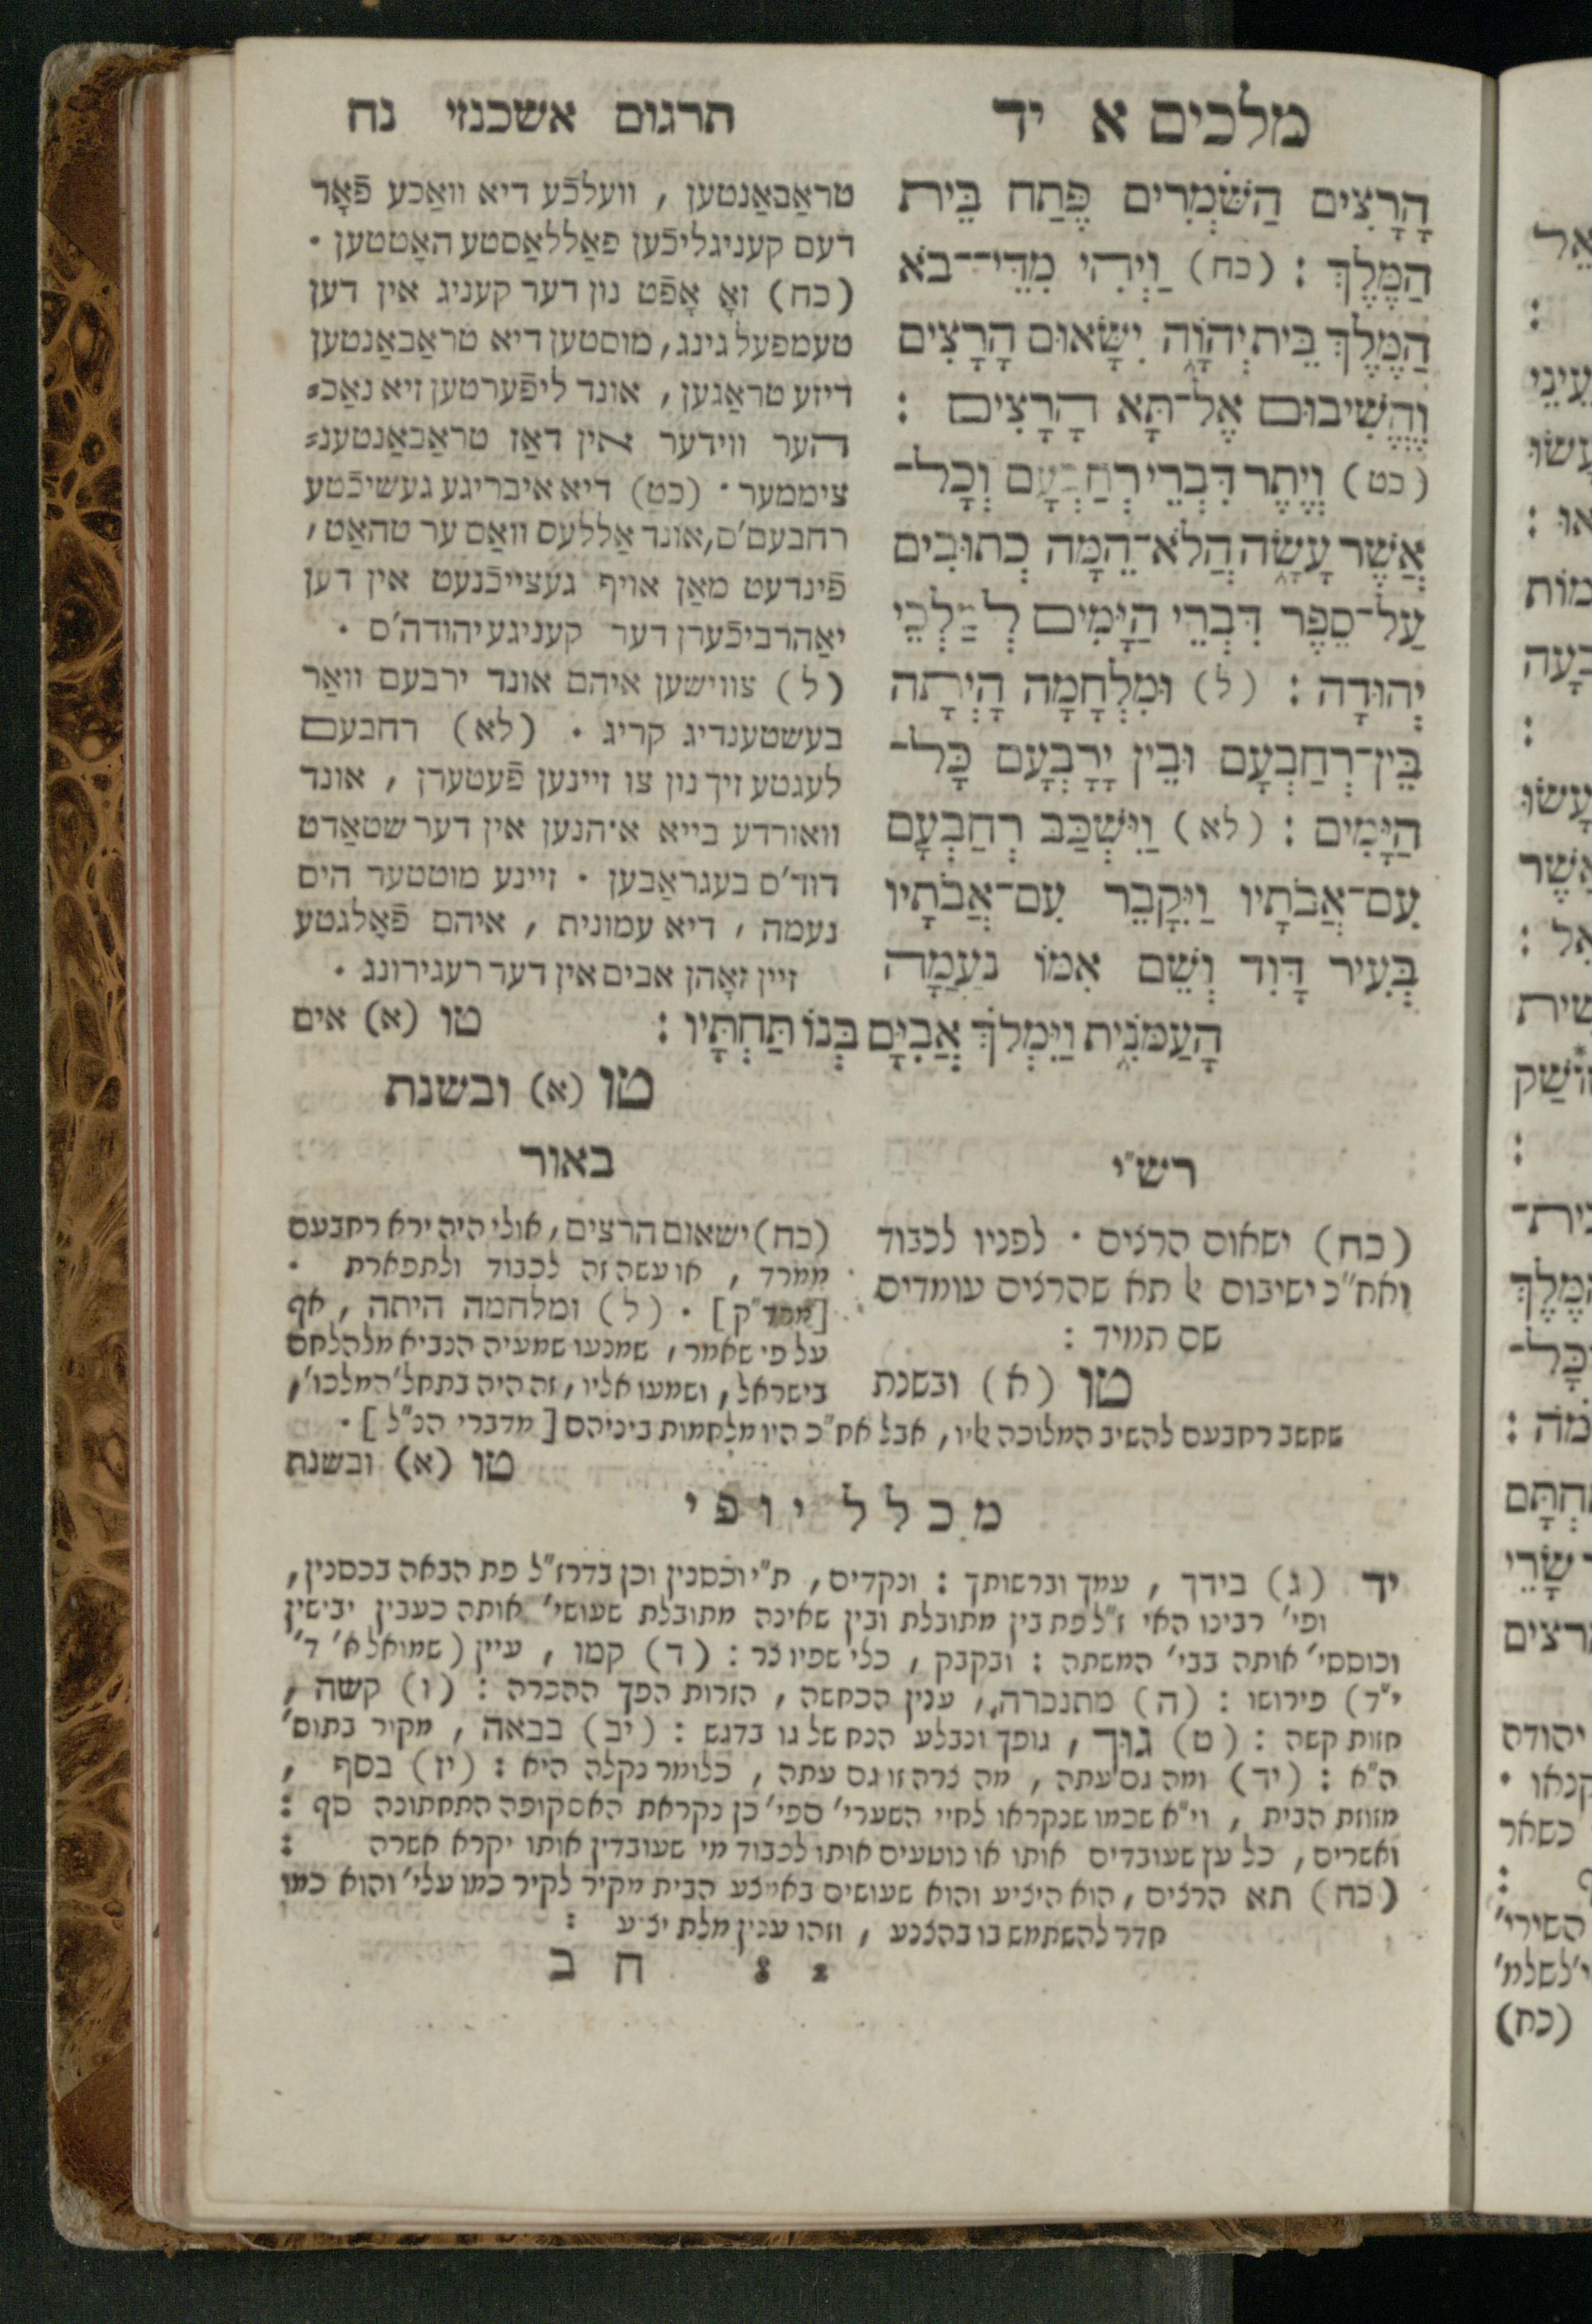 מלכים א יד
תרגום אשכנזי נח
הָרָצִים הַשֹּׁמְרִים פֶּתַח בֵּית
הַמֶּלֶךְ : (כח) וַיְהִי מִדֵּי־בֹא
הַמֶּלֶךְ בֵּית יְהוָֹה יִשָּׂאוּם הָרָצִים
וֶהֱשִׁיבוּם אֶל־תָּא הָרָצִים :
(כט) וְיֶתֶר דִּבְרֵי רְחַבְעָם וְכָל־
אֲשֶׁר עָשָׂה הֲלֹא־הֵמָּה כְתוּבִים
עַל־סֵפֶר דִּבְרֵי הַיָּמִים לְמַלְכֵי
יְהוּדָה : (ל) וּמִלְחָמָה הָיְתָה
בֵּין־רְחַבְעָם וּבֵין יָרָבְעָם כָּל־
הַיָּמִים : (לא) וַיִּשְׁכַּב רְחַבְעָם
עִם־אֲבֹתָיו וַיִּקָּבֵר עִם־אֲבֹתָיו
בְּעִיר דָּוִד וְשֵׁם אִמּוֹ נַעֲמָה
הָעַמֹּנִית וַיִּמְלֹךְ אֲבִיָּם בְּנוֹ תַּחְתָּיו :
טו (א) ובשנת
טראַבאַנטען , וועלכֿע דיא וואַכע פֿאָר
דעם קעניגליכֿען פאַללאַסטע האָטטען .
(כח) זאָ אָפֿט נון דער קעניג אין דען
טעמפעל גינג, מוסטען דיא טראַבאַנטען
דיזע טראַגען, אונד ליפֿערטען זיא נאַכ=
הער ווידער אין דאַז טראַבאַנטענ=
ציממער . (כט) דיא איבריגע געשיכֿטע
רחבעם'ס, אונד אַללעס וואַס ער טהאַט,
פֿינדעט מאַן אויף געצייכֿנעט אין דען
יאַהרביכֿערן דער קעניגע יהודה'ס .
(ל) צווישען איהם אונד ירבעם וואַר
בעשטענדיג קריג . (לא) רחבעם
לעגטע זיך נון צו זיינען פֿעטערן , אונד
וואורדע בייא איהנען אין דער שטאַדט
דוד'ס בעגראַבען . זיינע מוטטער היס
נעמה , דיא עמונית , איהם פֿאָלגטע
זיין זאָהן אבים אין דער רעגירונג .
טו (א) אים
רש"י
(כח) ישאום הרצים . לפניו לכבוד
ואח"כ ישיבום אל תא שהרצים עומדים
שם תמיד :
טו (א) ובשנת
באור
(כח) ישאום הרצים, אולי היה ירא רחבעם
ממרד , או עשה זה לכבוד ולתפארת .
(ל) ומלחמה היתה , אף
על פי שאמר , שמנעו שמעיה הנביא מלהלחם
בישראל, ושמעו אליו , זה היה בתחל' המלכו',
שחשב רחבעם להשיב המלוכה אליו, אבל אח"כ היו מלחמות ביניהם [ מדברי הנ"ל ] .
טו (א) ובשנת
מכלל יופי
יד (ג) בידך , עמך וברשותך : ונקדים, ת"י וכסנין וכן בדרז"ל פת הבאה בכסנין,
ופי' רבינו האי ז"ל פת בין מתובלת ובין שאינה מתובלת שעושי' אותה כעבין יבישין
וכוססי' אותה בבי' המשתה : ובקבק , כלי שפיו צר : (ד) קמו , עיין (שמואל א' ד'
י"ד) פירושו : (ה) מתנכרה, ענין הכחשה , הזרות הפך ההכרה : (ו) קשה ,
חזות קשה : (ט) גוך , גופך ונבלע הנח של גו בדגש : (יב) בבאה , מקיר בתוס'
ה"א : (יד) ומה גם עתה , מה צרה זו גם עתה , כלומר נקלה היא : (יז) בסף ,
מזוזת הבית , וי"א שכמו שנקראו לחיי השערי' ספי' כן נקראת האסקופה התחתונה סף :
ואשרים, כל עץ שעובדים אותו או נוטעים אותו לכבוד מי שעובדין אותו יקרא אשרה :
(כח) תא הרצים, הוא היציע והוא שעושים באמצע הבית מקיר לקיר כמו עלי' והוא כמו
חדר להשתמש בו בהצנע , וזהו ענין מלת יציע :
ח ב